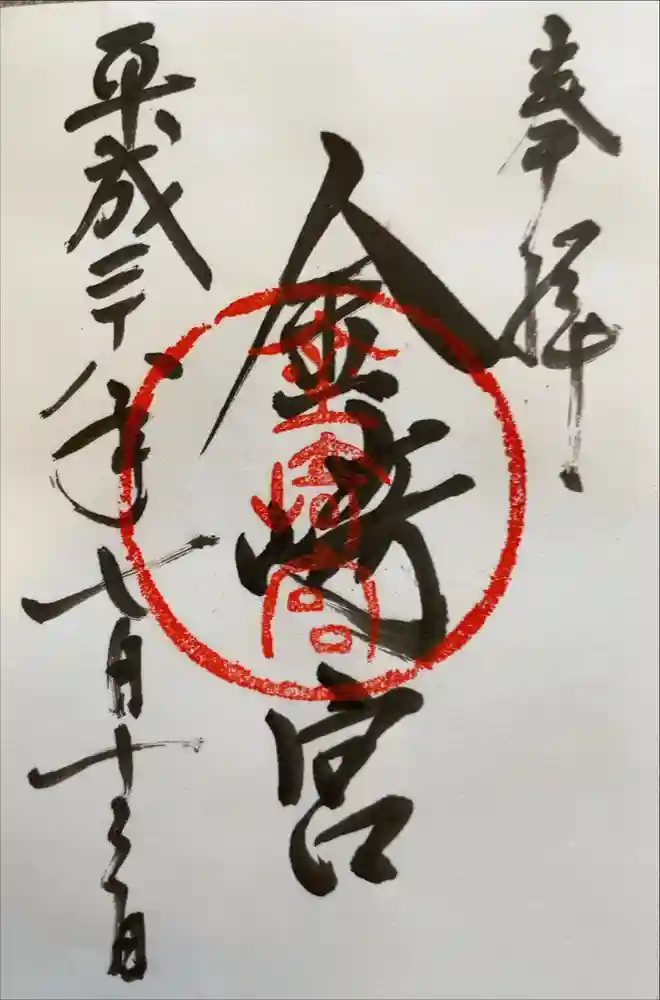 奉拝
金崎宮
金崎宮
平成二十八年七月十三日